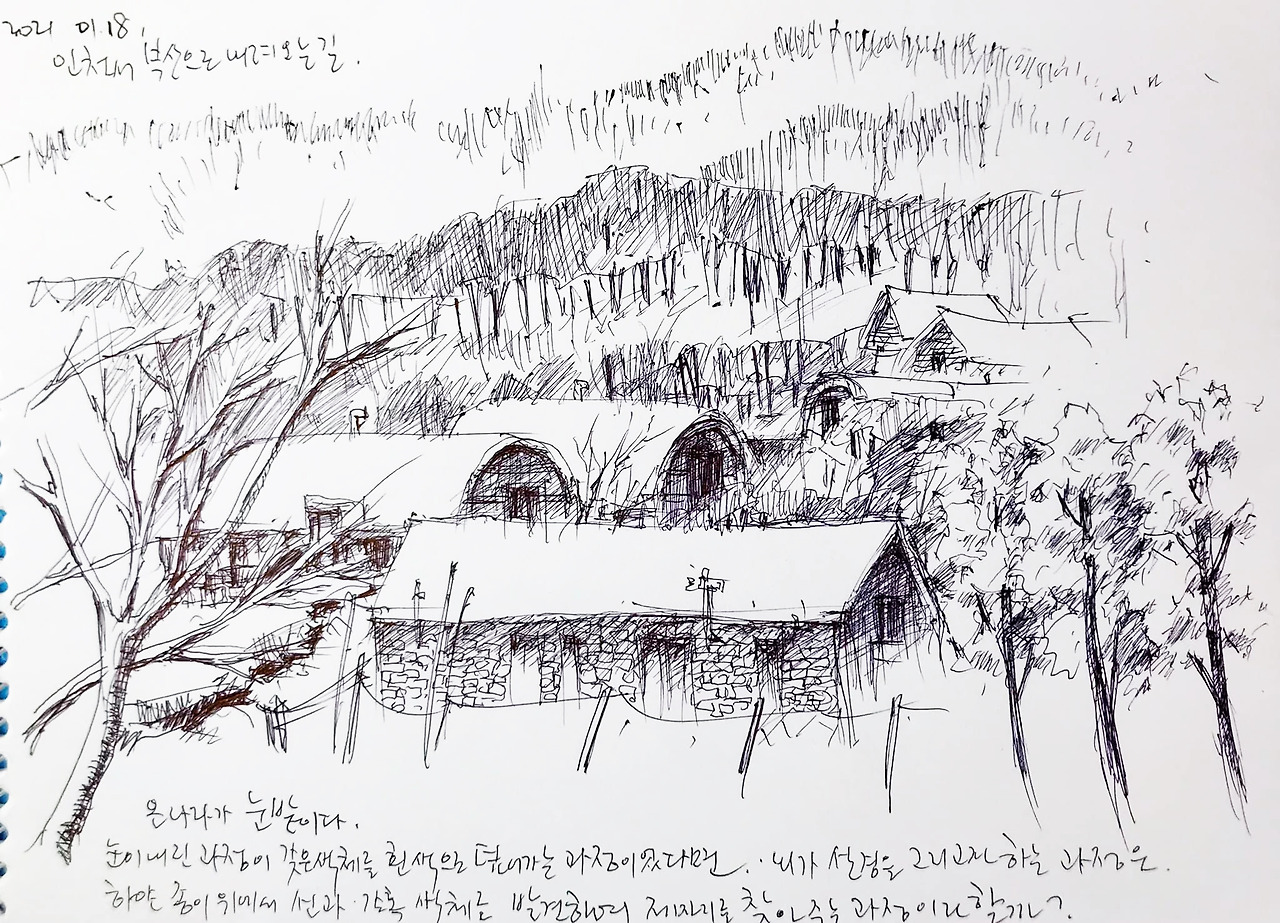 2021 01.18.
인천서 북산으로 내려오는길.
온나라가 눈밭이다.
눈이내린 과정이 갖은색체를 흰색으로 덮어가는 과정이었다면. 내가 설경을 그리고자 하는 과정은.
하얀 종이위에서 선과 간혹 색체를 발견하며 제자리를 찾아주는 과정이라 할까나?